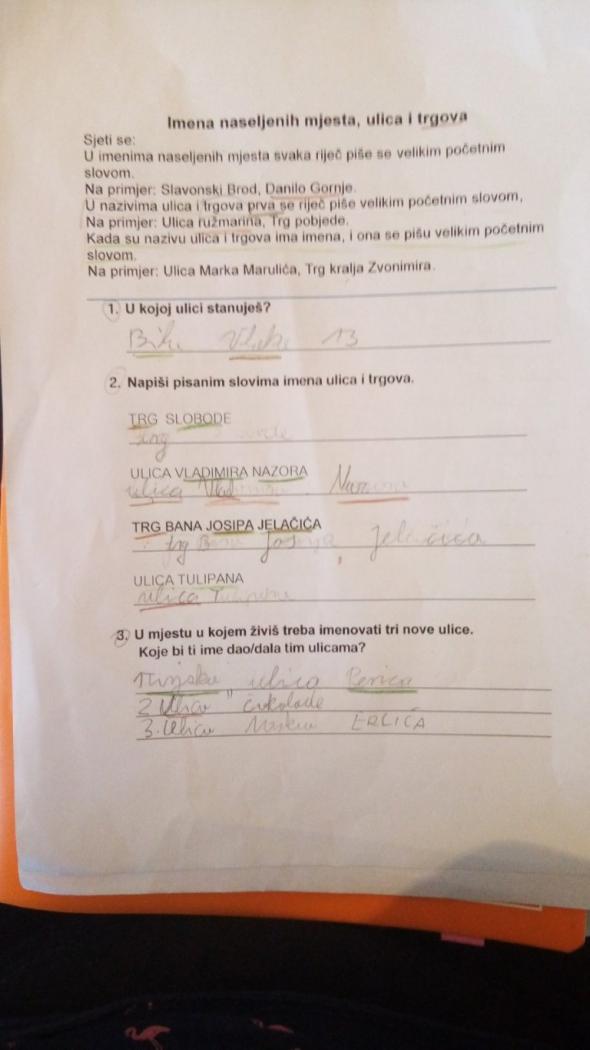 Imena naseljenih mjesta, ulica i trgova
Sjeti se:
U imenima naseljenih mjesta svaka riječ piše se velikim početnim
slovom.
Na primjer: Slavonski Brod, Danilo Gornje.
U nazivima ulica i trgova prva se riječ piše velikim početnim slovom,
Na primjer: Ulica ružmarina, Trg pobjede.
Kada su nazivu ulica i trgova ima imena, i ona se pišu velikim početnim
slovom.
Na primjer: Ulica Marka Marulića, Trg kralja Zvonimira.
1. U kojoj ulici stanuješ?
13
2. Napiši pisanim slovima imena ulica i trgova.
TRG SLOBODE
trg
ULICA VLADIMIRA NAZORA
ulica
TRG BANA JOSIPA JELAČIĆA
trg Jelačića
ULICA TULIPANA
ulica
3. U mjestu u kojem živiš treba imenovati tri nove ulice.
Koje bi ti ime dao/dala tim ulicama?
ulica
2 Ulica čokolade
3. Ulica ERLIĆA